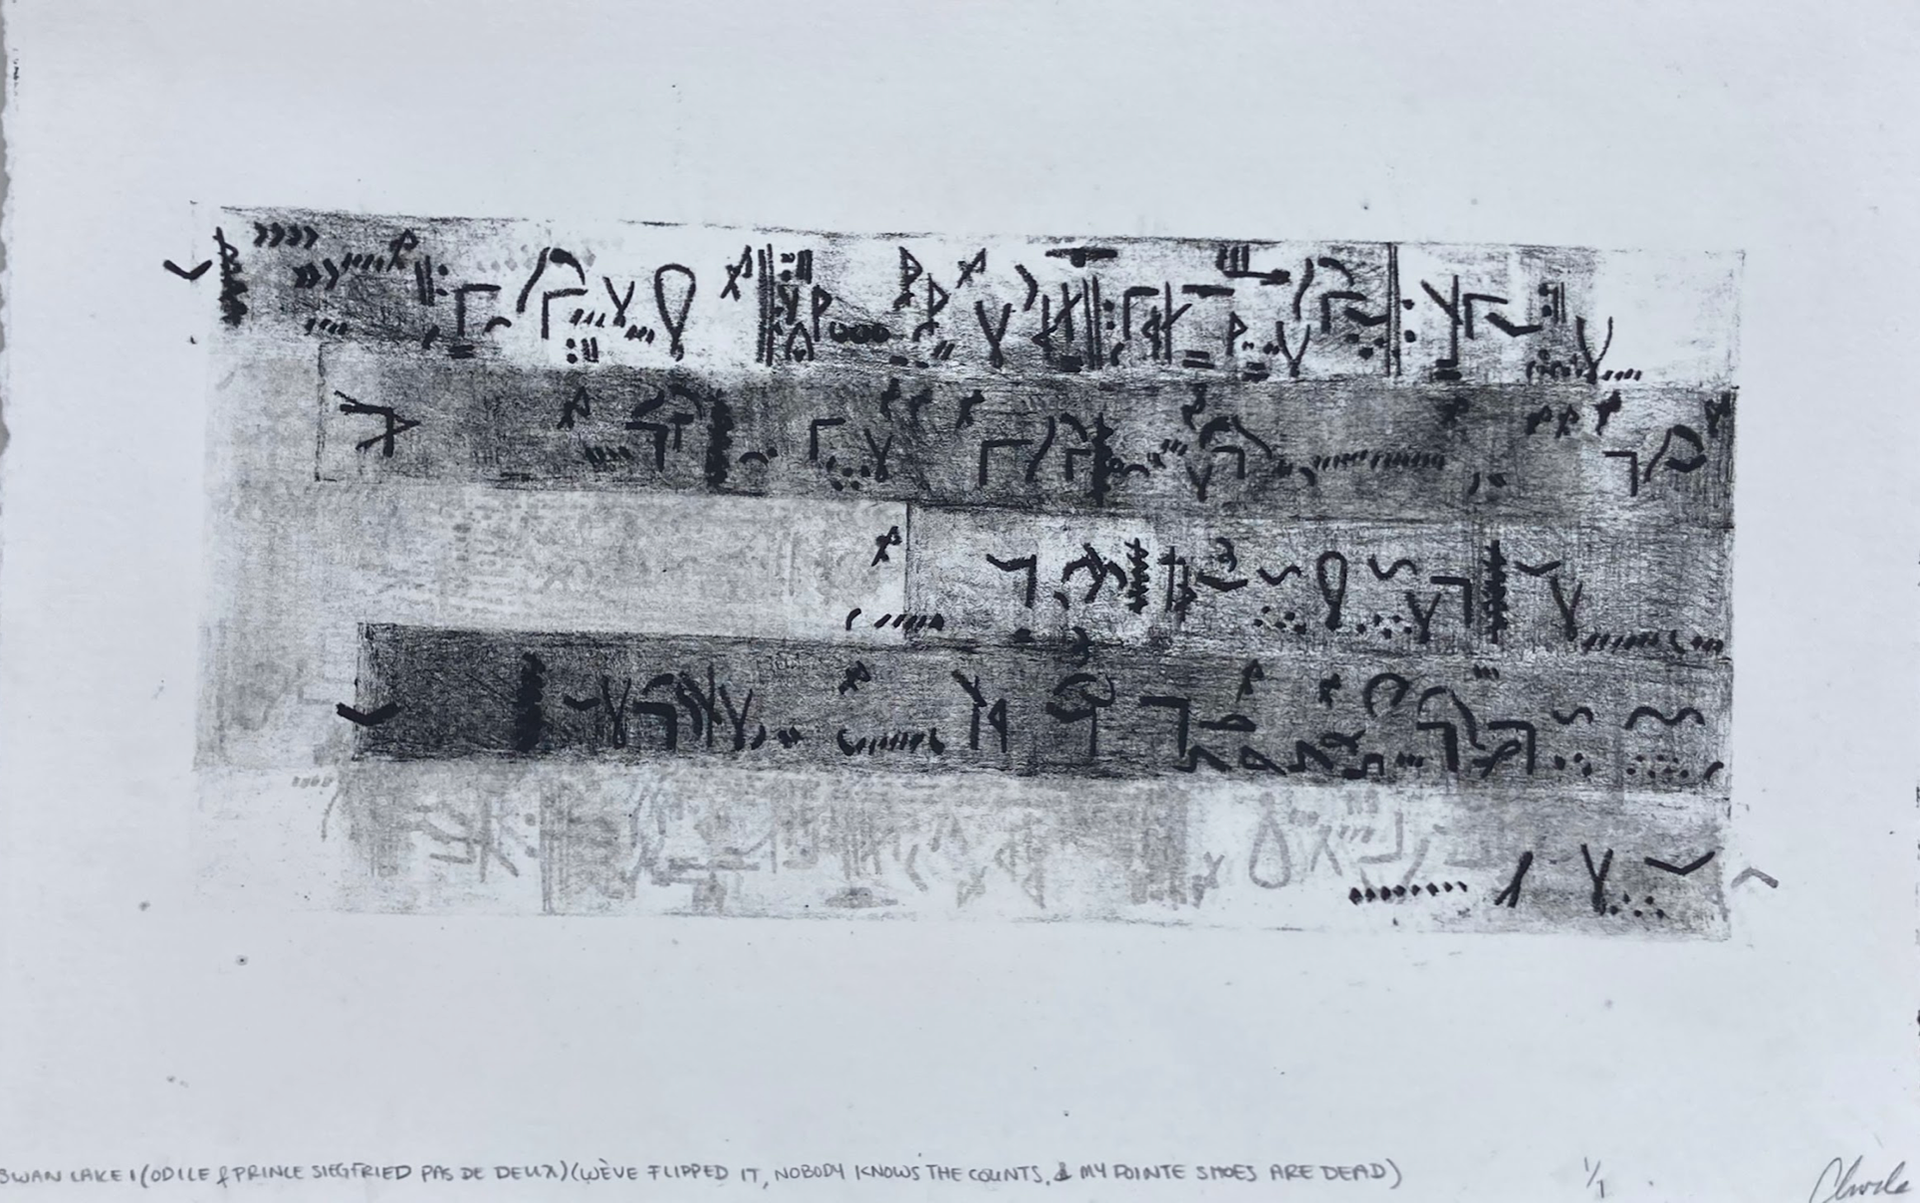 SWAN LAKE 1 (ODILE & PRINCE SIEGFRIED PAS DE DEUX) (WE'VE FLIPPED IT, NOBODY KNOWS THE COUNTS, & MY POINTE SHOES ARE DEAD) 1/1